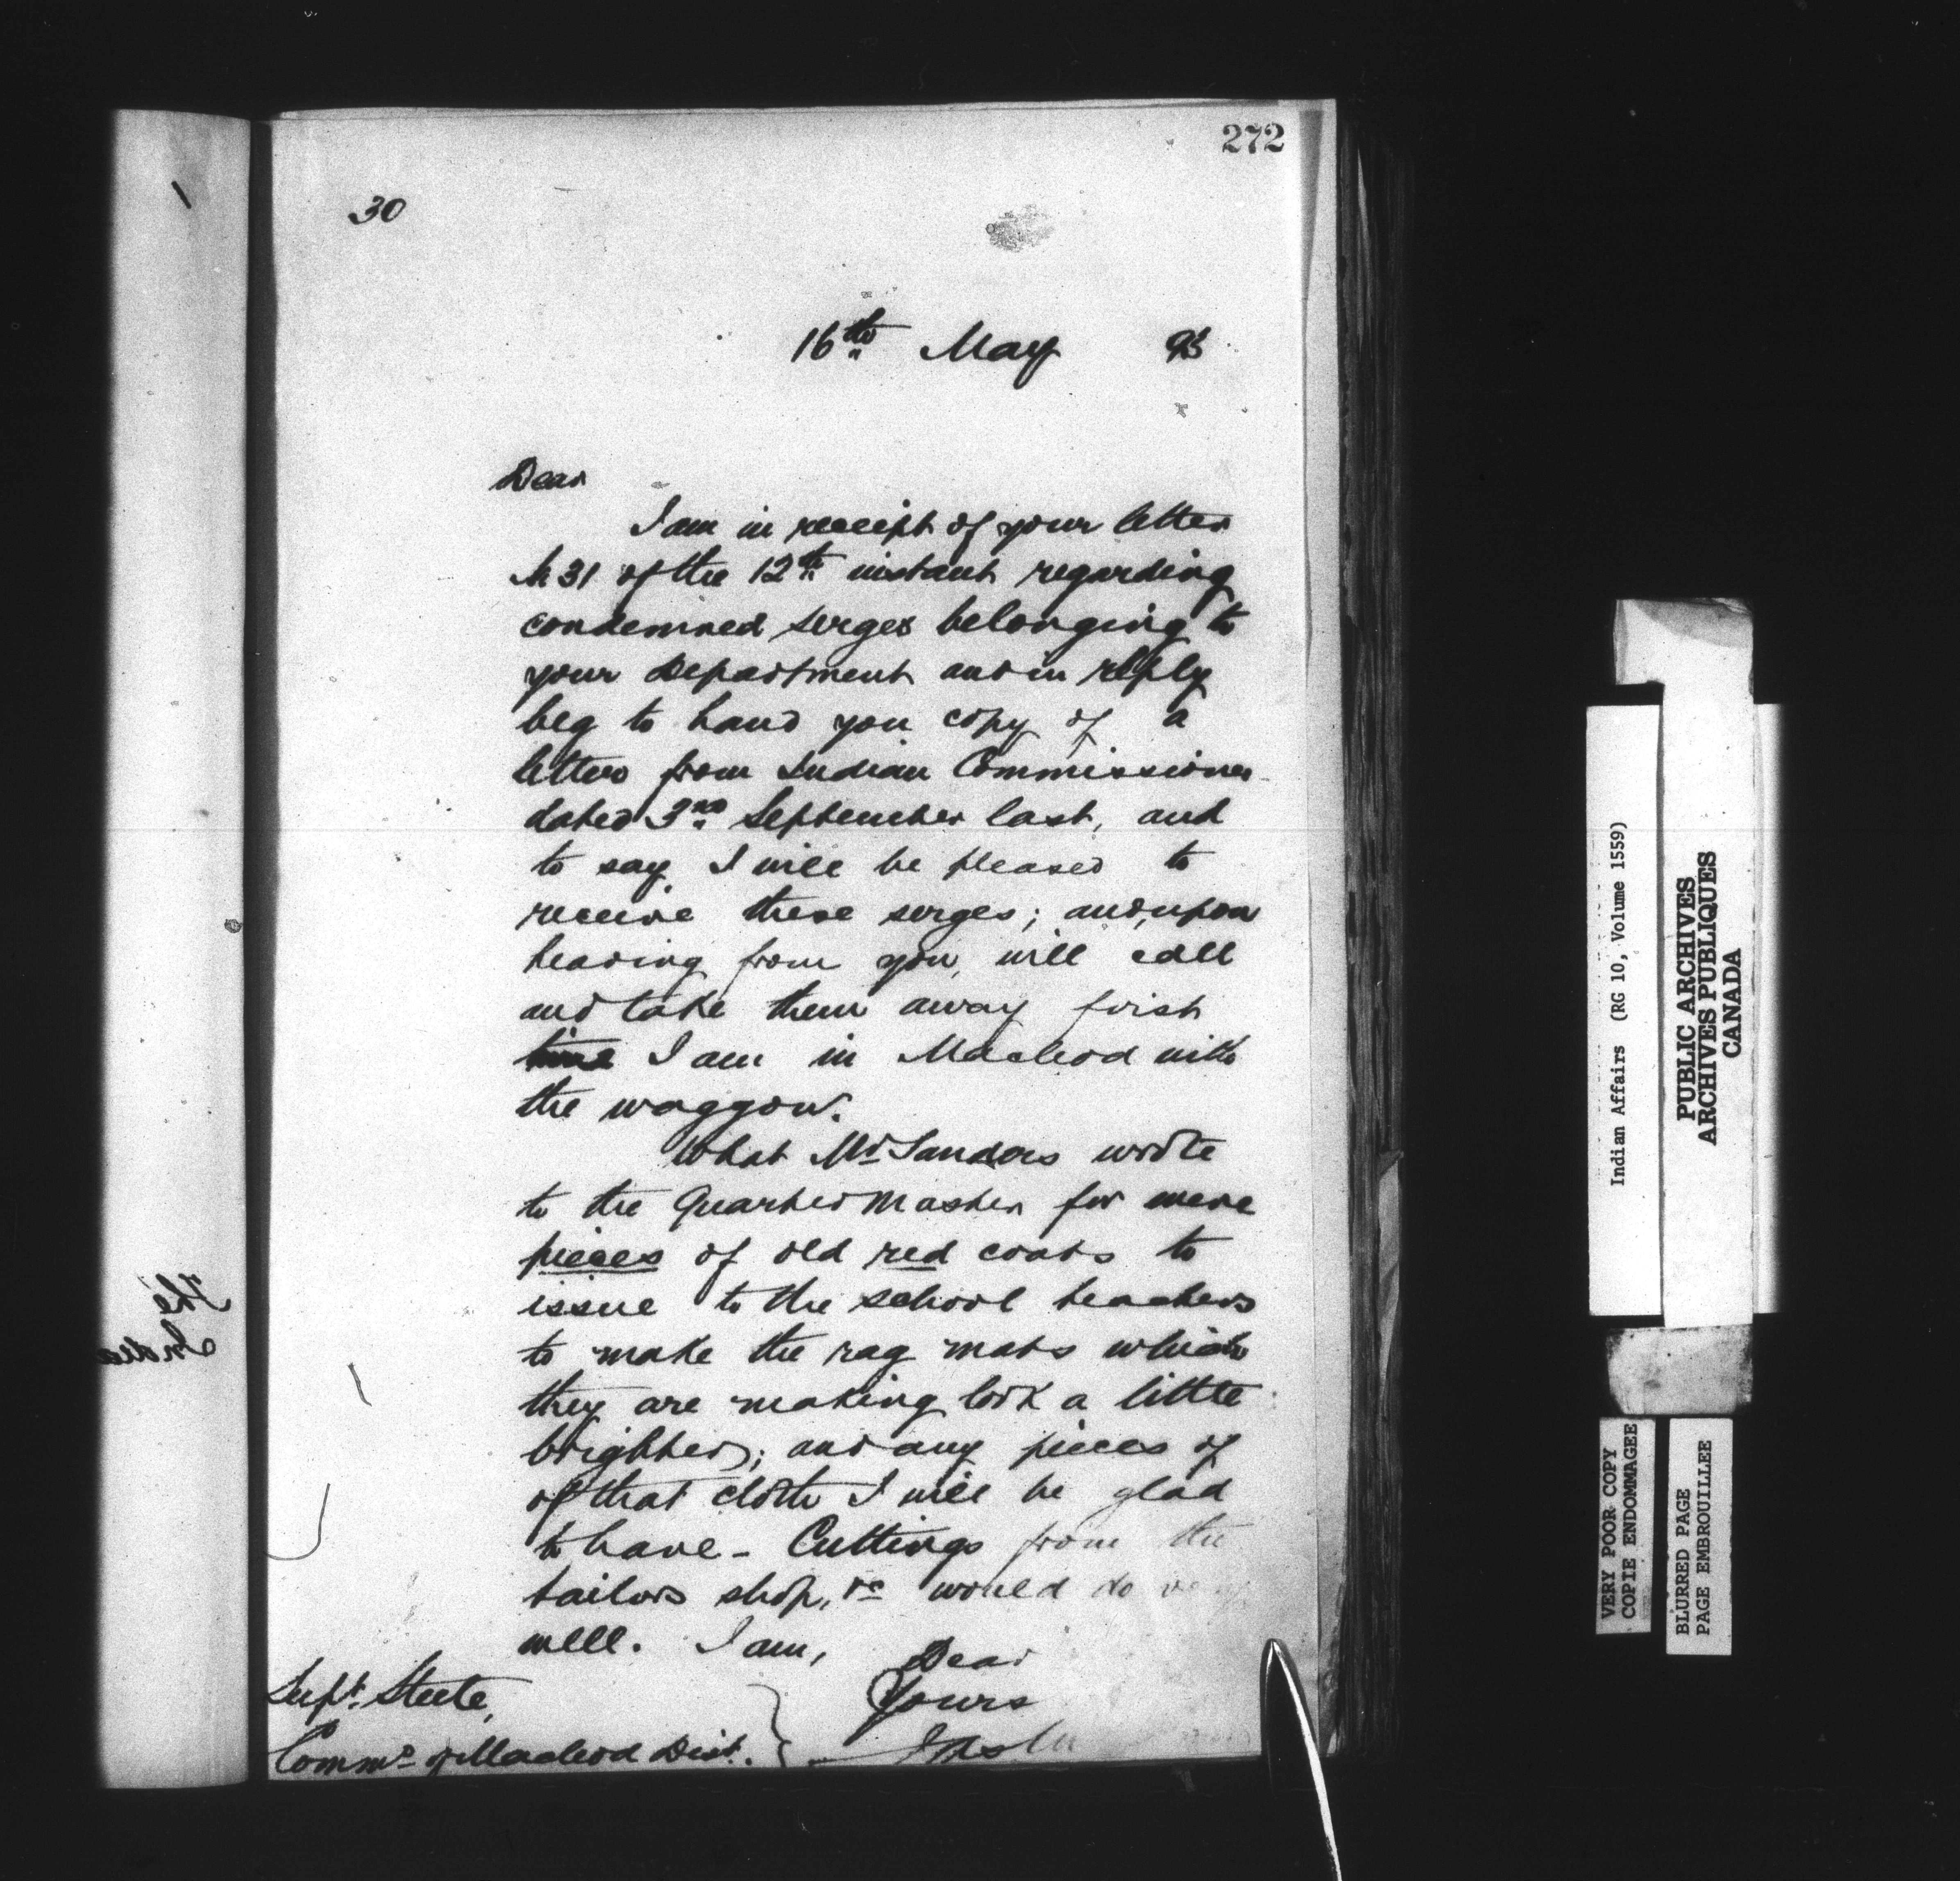 272
30
16th May 93
Dear
I am in receipt of your letter
No 31 of the 12th instant regarding
condemned serges belonging to
your Department and in reply
beg to hand you copy of a
letter from Indian Commissioner
dated 3rd September last, and
to say I will be pleased to
receive these serges; and, upon
hearing from you, will call
and take them away first
time I am in Macleod with
the waggon.
What Mr Sanders wrote
to the Quarter Master for were
pieces of old red coats to
issue to the school teachers
to make the rag mats which
they are making look a little
brighter; and any pieces of
of that cloth I will be glad
to have - Cuttings from the
tailors shop, &c would do very
well. I am, Dear
Yours
Supt. Steele,
Commg of Macleod Dist.
The
Indian
Indian Affairs (RG 10, Volume 1559)
PUBLIC ARCHIVES
ARCHIVES PUBLIQUES
CANADA
VERY POOR COPY
COPIE ENDOMMAGEE
BLURRED PAGE
PAGE EMBROUILLEE